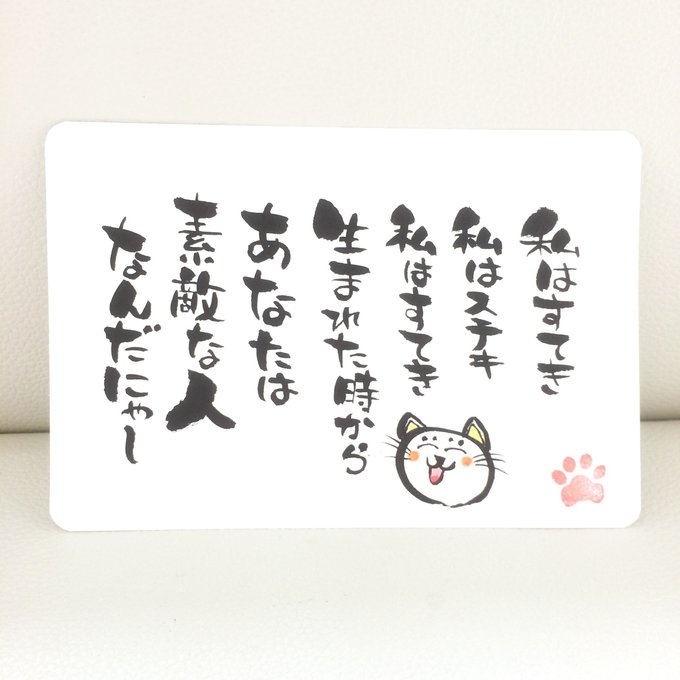 私はすてき
私はステキ
私はすてき
生まれた時から
あなたは
素敵な人
なんだにゃー